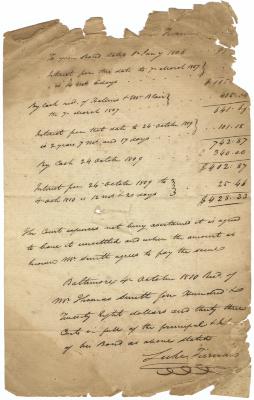 To your Bond dated
Interest from this date to 7 March 1807
is 14 m
By Cash red. of Hollins & McBlair
the 7 March 1807
641.69
Interest from that date to 24 octobr 1809 101.18
is 2 years 7 Mo. and 17 days
742.87
By Cash 24 october 1809 340.00
$ 402.87
Interest from 24 october 1809 to
4 octob 1810 is days 25.46
$ 428.33
The Court expences not being ascertained it is agreed
to leave it unsettled and when the amount is
known Mr Smith agrees to pay the same
Baltimore 4 October 1810 Recd of
Mr Thomas Smith four Hundred &
Twenty Eight dollars and thirty three
Cents in full of the principal & Int.
of his Bond as above stated
Luke Tiernan